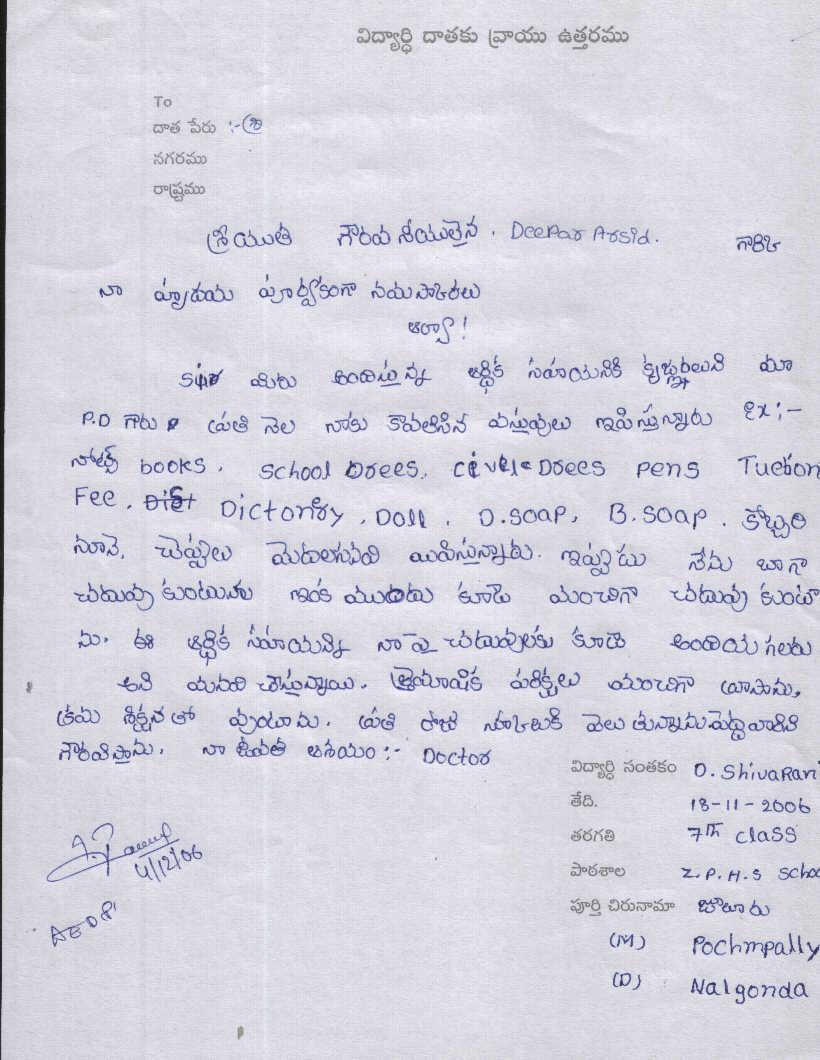 విద్యార్థి దాతకు వ్రాయు ఉత్తరము
To
దాత పేరు :- శ్రీ
నగరము
రాష్ట్రము
శ్రీయుత గౌరవనీయులైన. Deepar Arsid. గారికి
నా హృదయ పూర్వకంగా నమస్కారలు
ఆర్యా!
మీరు అందిస్తున్న ఆర్థిక సహాయనికి కృతజ్ఞురలుని మా
P.D గారు ప్రతి నెల నాకు కావలసిన వస్తువులు ఇపిస్తున్నారు Ex:-
నోట్స్ books. School Drees. civel Drees pens Tuetion
Fee. Dictonary, Doll. D.soap, B.soap. కొబ్బరి
నూనె, చెప్పులు మొదలగునవి యిపిస్తున్నారు. ఇప్పుడు నేను బాగా
చదువు కుంటున్నాను ఇంక ముందు కూడా మంచిగా చదువు కుంటా
ను. ఈ ఆర్థిక సహాయన్ని నా పై చదువులకు కూడా అందియ గలరు
అని మనవి చేస్తున్నాయి. త్రైమాషిక పరిక్షలు మంచిగా వ్రాసాను,
క్రమ శిక్షన తో వుంటాను. ప్రతి రోజు స్కూలుకి వెలుతున్నాను పెద్దవారిని
గౌరవిస్తాను. నా జీవత ఆశయం :- Doctor
విద్యార్థి సంతకం D. ShivaRani
తేది. 13-11-2006
తరగతి 7th class
పాఠశాల Z.P.H.S School
పూర్తి చిరునామా జూలూరు
(M) Pochmpally
(D) Nalgonda
4/12/06